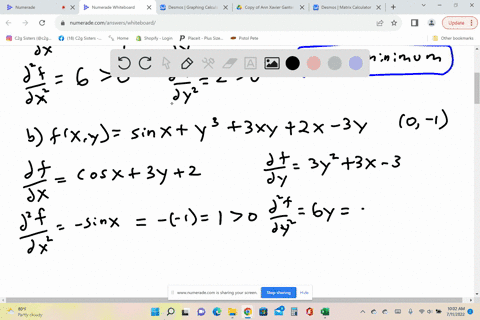 Numerade
Numerade Whiteboard
Desmos | Graphing Calcul
Copy of Ann Xavier Gantert
Desmos | Matrix Calculator
numerade.com/answers/whiteboard/
Update
C2g Sisters (@c2g...
Home
Shopify - Login
Placed - Plus Size...
Pistol Pete
∂x
∂²f/∂x² = 6 > 0
∂y² = 2 > 0
minimum
b) f(x,y) = sinx + y³ + 3xy + 2x - 3y (0, -1)
∂f/∂x = cosx + 3y + 2
∂f/∂y = 3y² + 3x - 3
∂²f/∂x² = -sinx = -(-1) = 1 > 0
∂²f/∂y² = 6y =
www.numerade.com is sharing your screen.
Stop sharing
Hide
80°F
Partly cloudy
10:02 AM
7/11/2022